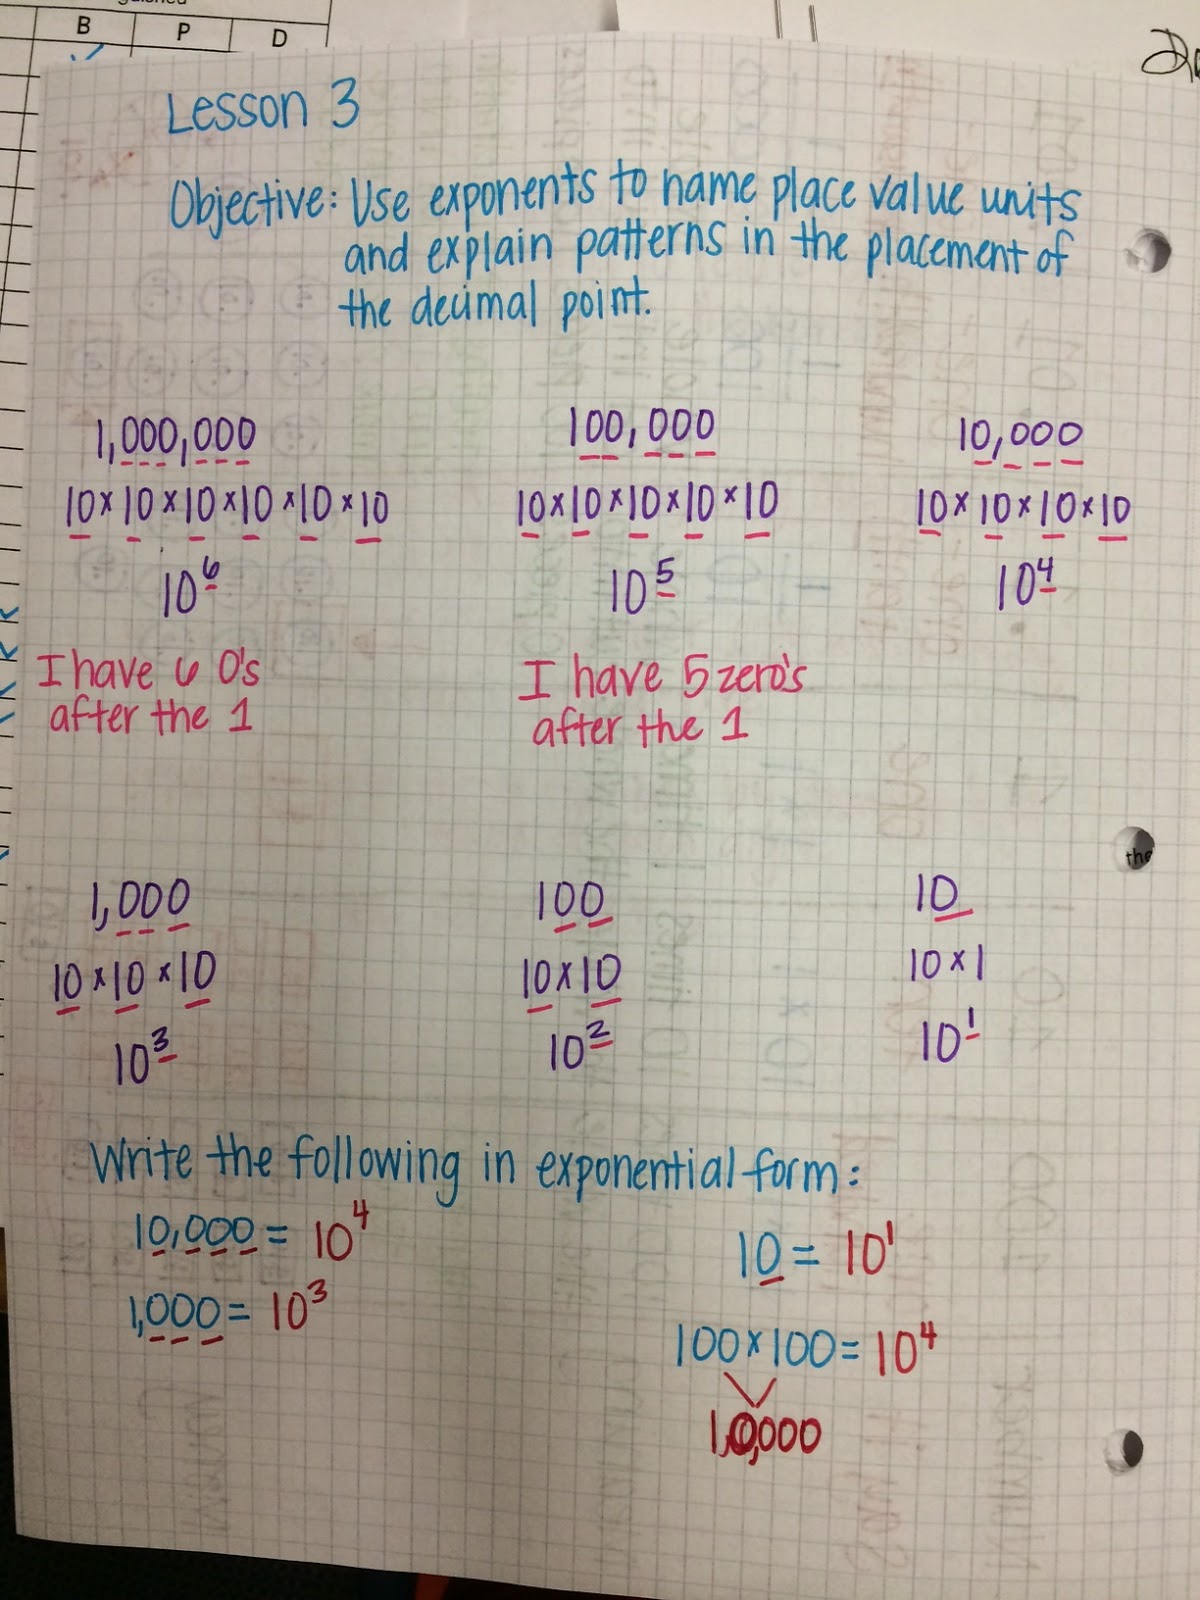 B P D
Lesson 3
Objective: Use exponents to name place value units
and explain patterns in the placement of
the decimal point.
1,000,000 100,000 10,000
10×10×10×10×10×10 10×10×10×10×10 10×10×10×10
10⁶ 10⁵ 10⁴
I have 6 0's I have 5 zero's
after the 1 after the 1
the
1,000 100 10
10×10×10 10×10 10×1
10³ 10² 10¹
Write the following in exponential form:
10,000 = 10⁴ 10 = 10¹
1,000 = 10³
100×100 = 10⁴
10,000